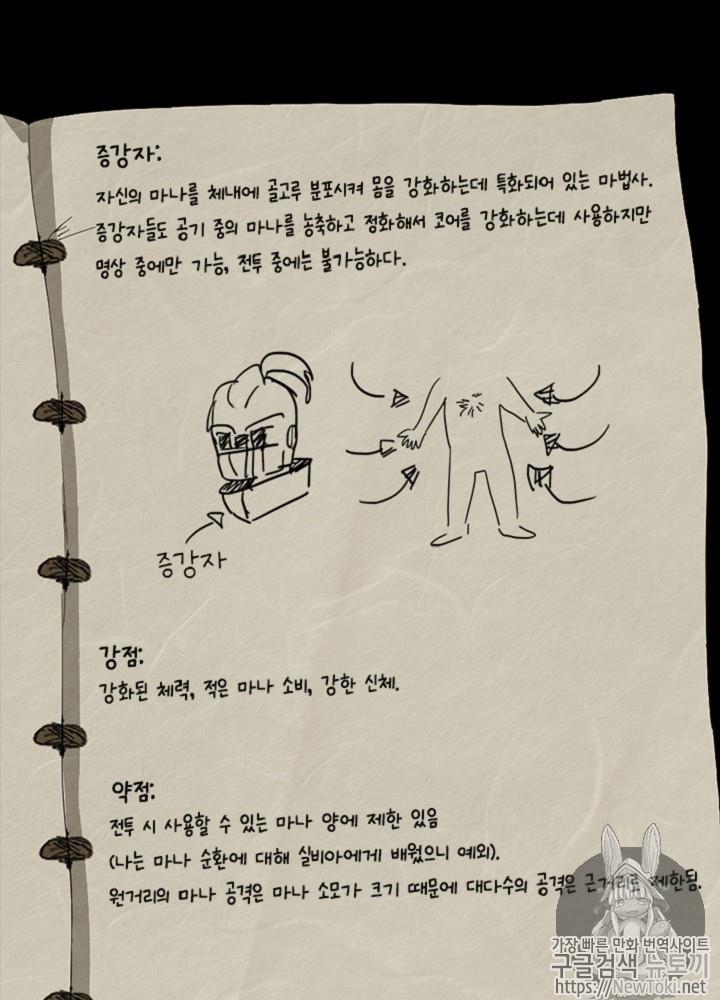 증강자:
자신의 마나를 체내에 골고루 분포시켜 몸을 강화하는데 특화되어 있는 마법사.
증강자들도 공기 중의 마나를 농축하고 정화해서 코어를 강화하는데 사용하지만
명상 중에만 가능, 전투 중에는 불가능하다.
증강자
강점:
강화된 체력, 적은 마나 소비, 강한 신체.
약점:
전투 시 사용할 수 있는 마나 양에 제한 있음
(나는 마나 순환에 대해 실비아에게 배웠으니 예외).
원거리의 마나 공격은 마나 소모가 크기 때문에 대다수의 공격은 근거리로 제한됨.
가장 빠른 만화 번역사이트
구글검색 뉴토끼
https://NewToki.net